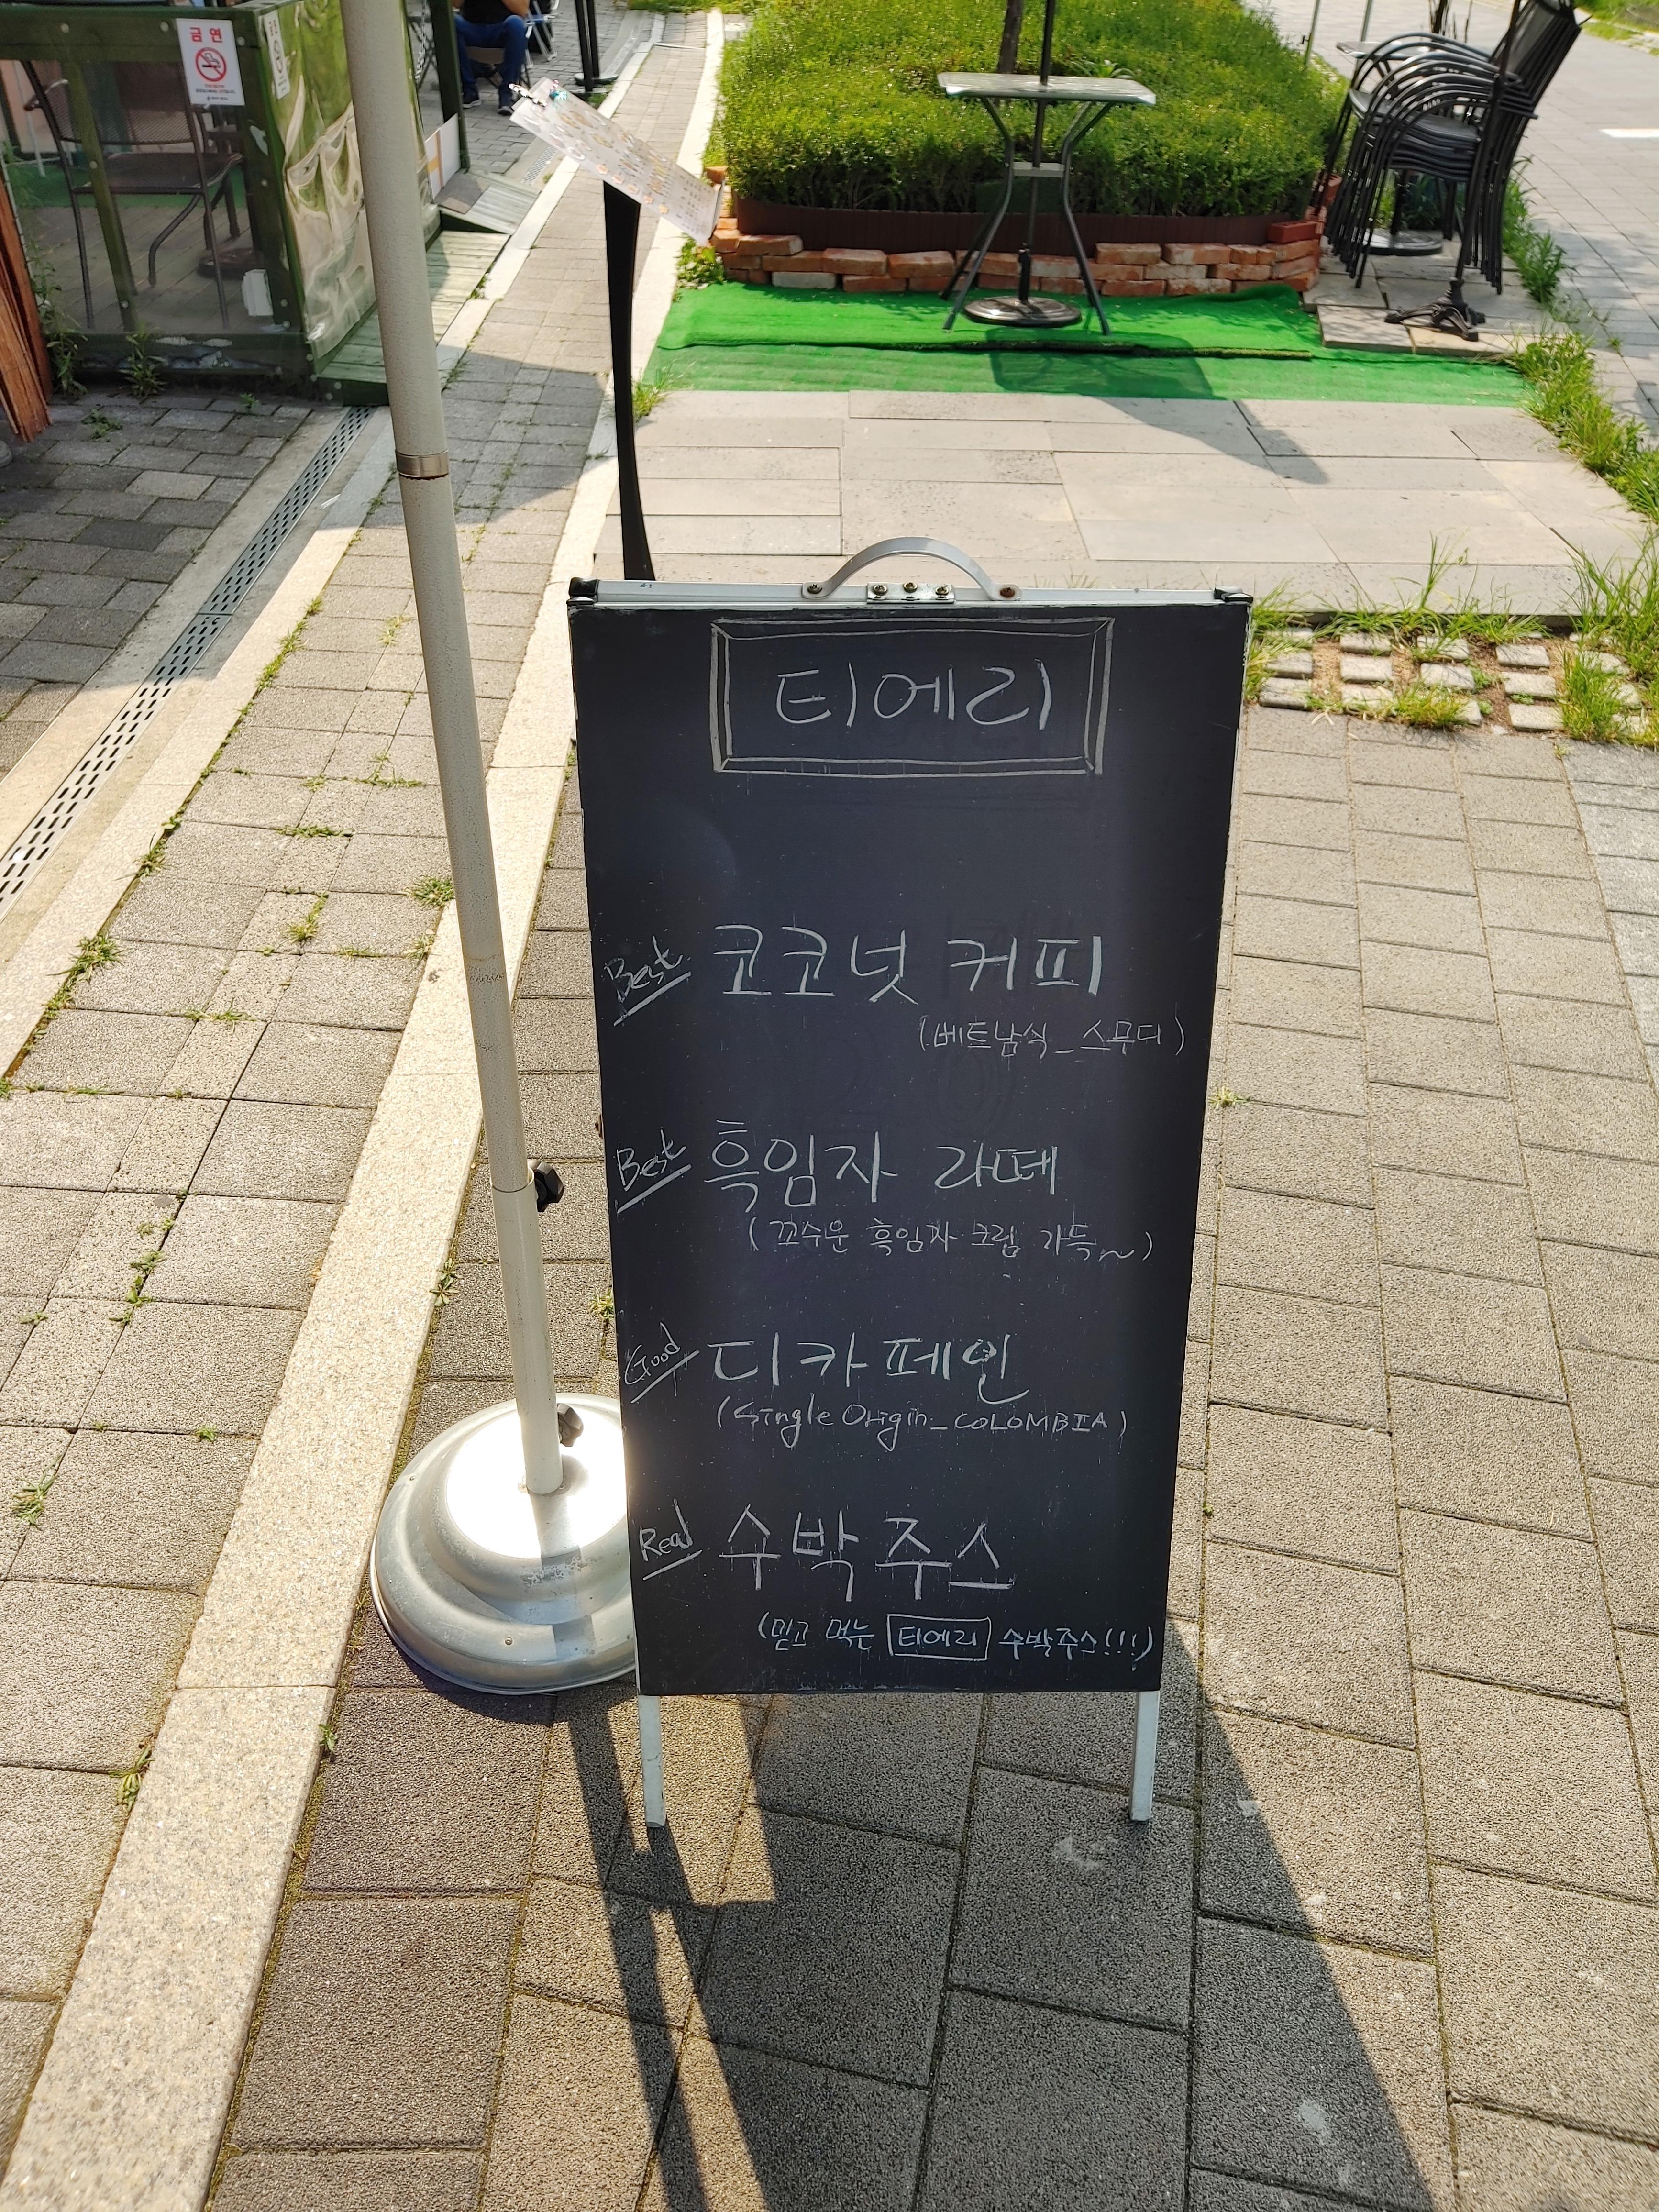 금연
티에리
Best 코코넛 커피
(베트남식_스무디)
Best 흑임자 라떼
(꼬수운 흑임자 크림 가득~)
Good 디카페인
(Single Origin_COLOMBIA)
Real 수박주스
(믿고 먹는 티에리 수박주스!!!)